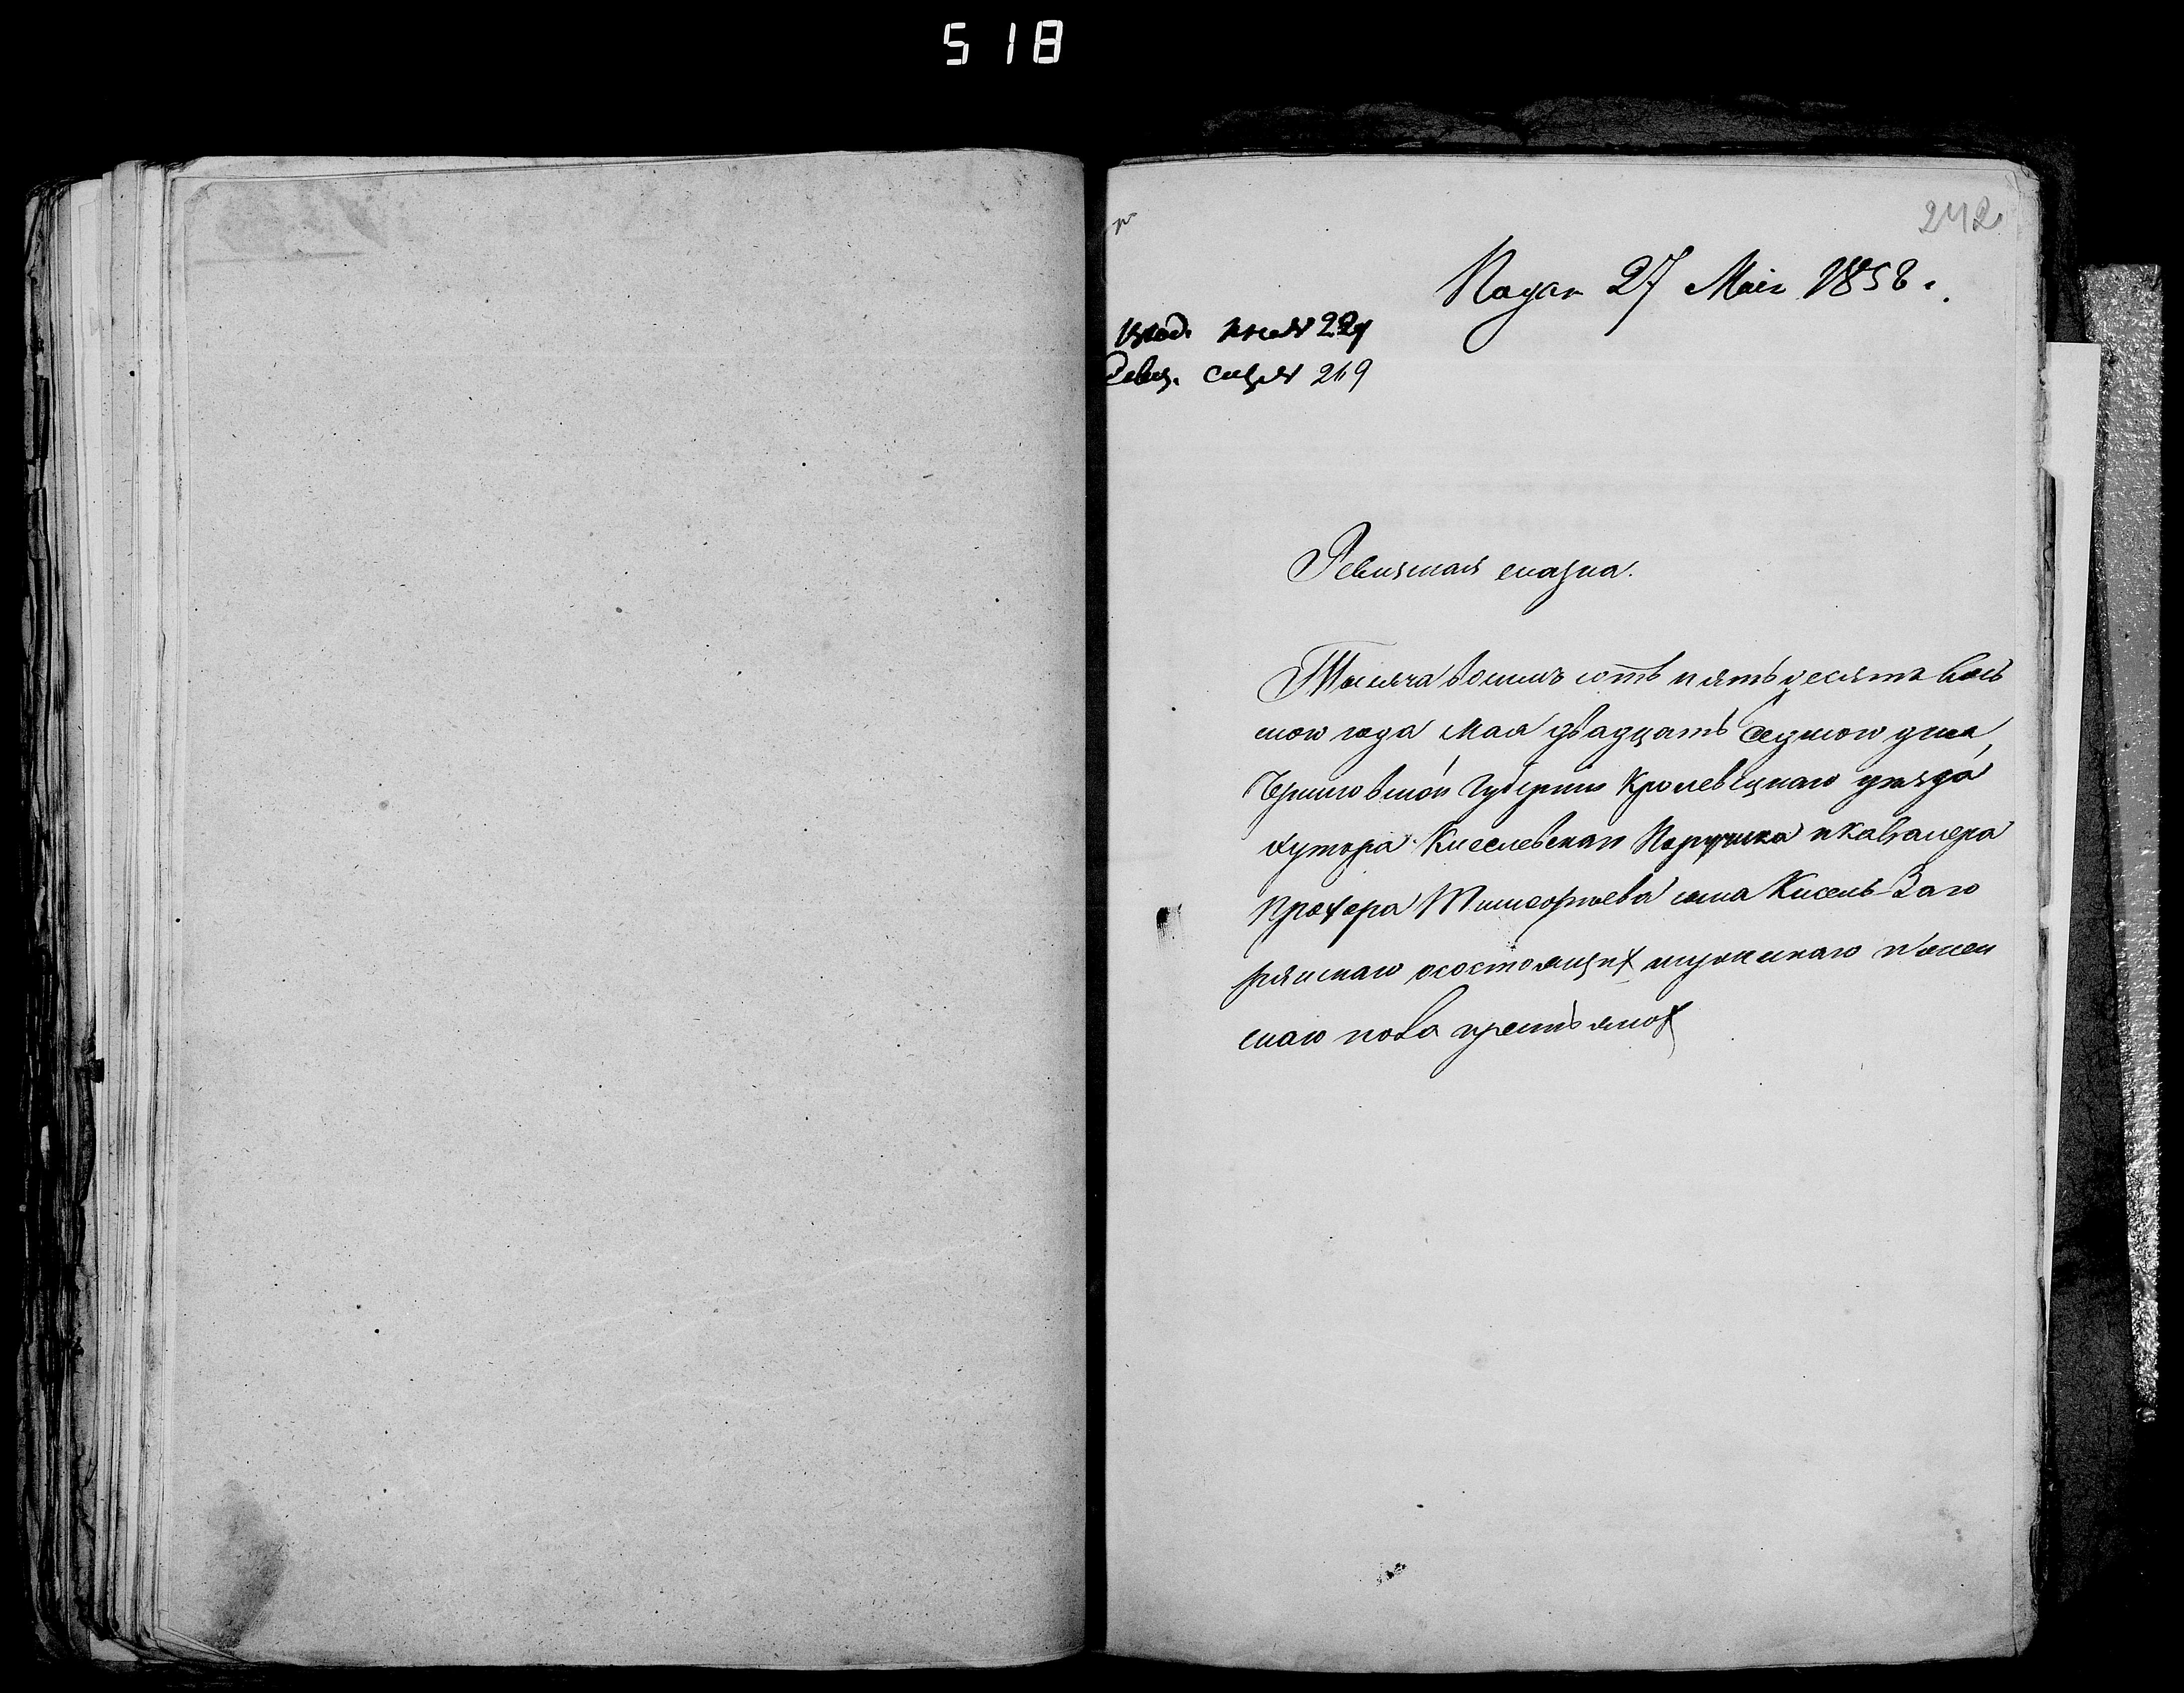 518
242
Подан 27 Мая 1858 г.
Вход. 229
Ревиз. 269
Ревизская сказка.
Тысяча восемь сотъ пятьдесятъ вось
мого года Мая двадцать седмого дня,
Черниговской Губерніи Кролевецкаго уѣзда
хутора Киселевскаго Поручика и Кавалера
Прохора Тимофѣева сына Кисель-Заго
рянскаго о состоящих мужескаго и жен
скаго пола крестьянах